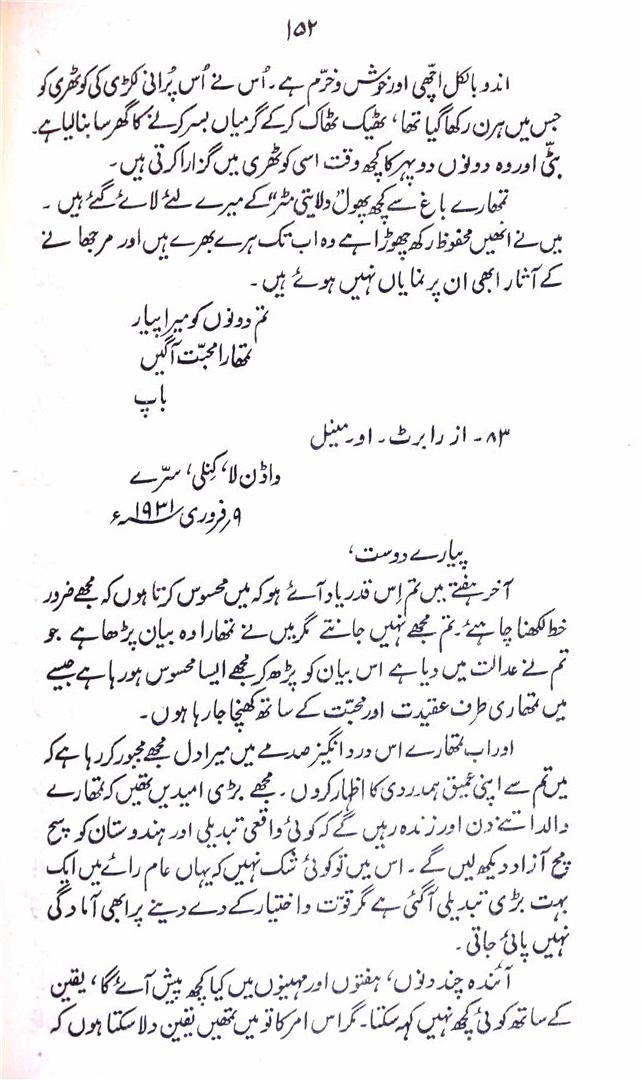 ۱۵۲
اندو بالکل اچھی اور خوش و خرم ہے۔ اُس نے اُس پُرانی لکڑی کی کوٹھری کو
جس میں ہرن رکھا گیا تھا، ٹھیک ٹھاک کرکے گرمیاں بسر کرنے کا گھر سا بنالیا ہے۔
بٹی اور وہ دونوں دوپہر کا کچھ وقت اسی کوٹھری میں گزارا کرتی ہیں۔
تمھارے باغ سے کچھ پھول "ولایتی مٹر" کے میرے لئے لائے گئے ہیں۔
میں نے انھیں محفوظ رکھ چھوڑا ہے وہ اب تک ہرے بھرے ہیں اور مرجھانے
کے آثار ابھی ان پر نمایاں نہیں ہوئے ہیں۔
تم دونوں کو میرا پیار
تمھارا محبّت آگیں
باپ
۸۳۔ از رابرٹ۔ او۔ مینل
واڈن لا، کِنلی، سرّے
۹ر فروری ۱۹۳۱ء
پیارے دوست،
آخر ہفتے میں تم اِس قدر یاد آئے ہو کہ میں محسوس کرتا ہوں کہ مجھے ضرور
خط لکھنا چاہئے۔ تم مجھے نہیں جانتے مگر میں نے تمھارا وہ بیان پڑھا ہے جو
تم نے عدالت میں دیا ہے اس بیان کو پڑھ کر مجھے ایسا محسوس ہو رہا ہے جیسے
میں تمھاری طرف عقیدت اور محبّت کے ساتھ کھنچا جا رہا ہوں۔
اور اب تمھارے اس درد انگیز صدمے میں میرا دل مجھے مجبور کر رہا ہے کہ
میں تم سے اپنی عمیق ہمدردی کا اظہار کروں۔ مجھے بڑی امیدیں تھیں کہ تمھارے
والد اتنے دن اور زندہ رہیں گے کہ کوئی واقعی تبدیلی اور ہندوستان کو سچ
مچ آزاد دیکھ لیں گے۔ اس میں تو کوئی شک نہیں کہ یہاں عام رائے میں ایک
بہت بڑی تبدیلی آگئی ہے مگر قوّت و اختیار کے دے دینے پر ابھی آمادگی
نہیں پائی جاتی۔
آئندہ چند دنوں، ہفتوں اور مہینوں میں کیا کچھ پیش آئے گا، یقین
کے ساتھ کوئی کچھ نہیں کہہ سکتا۔ مگر اس امر کا تو میں تمھیں یقین دلا سکتا ہوں کہ